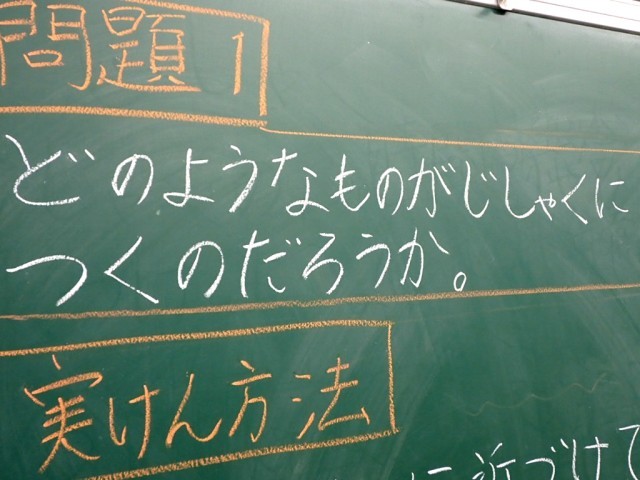 問題1
どのようなものがじしゃくに
つくのだろうか。
実けん方法
に近づけて